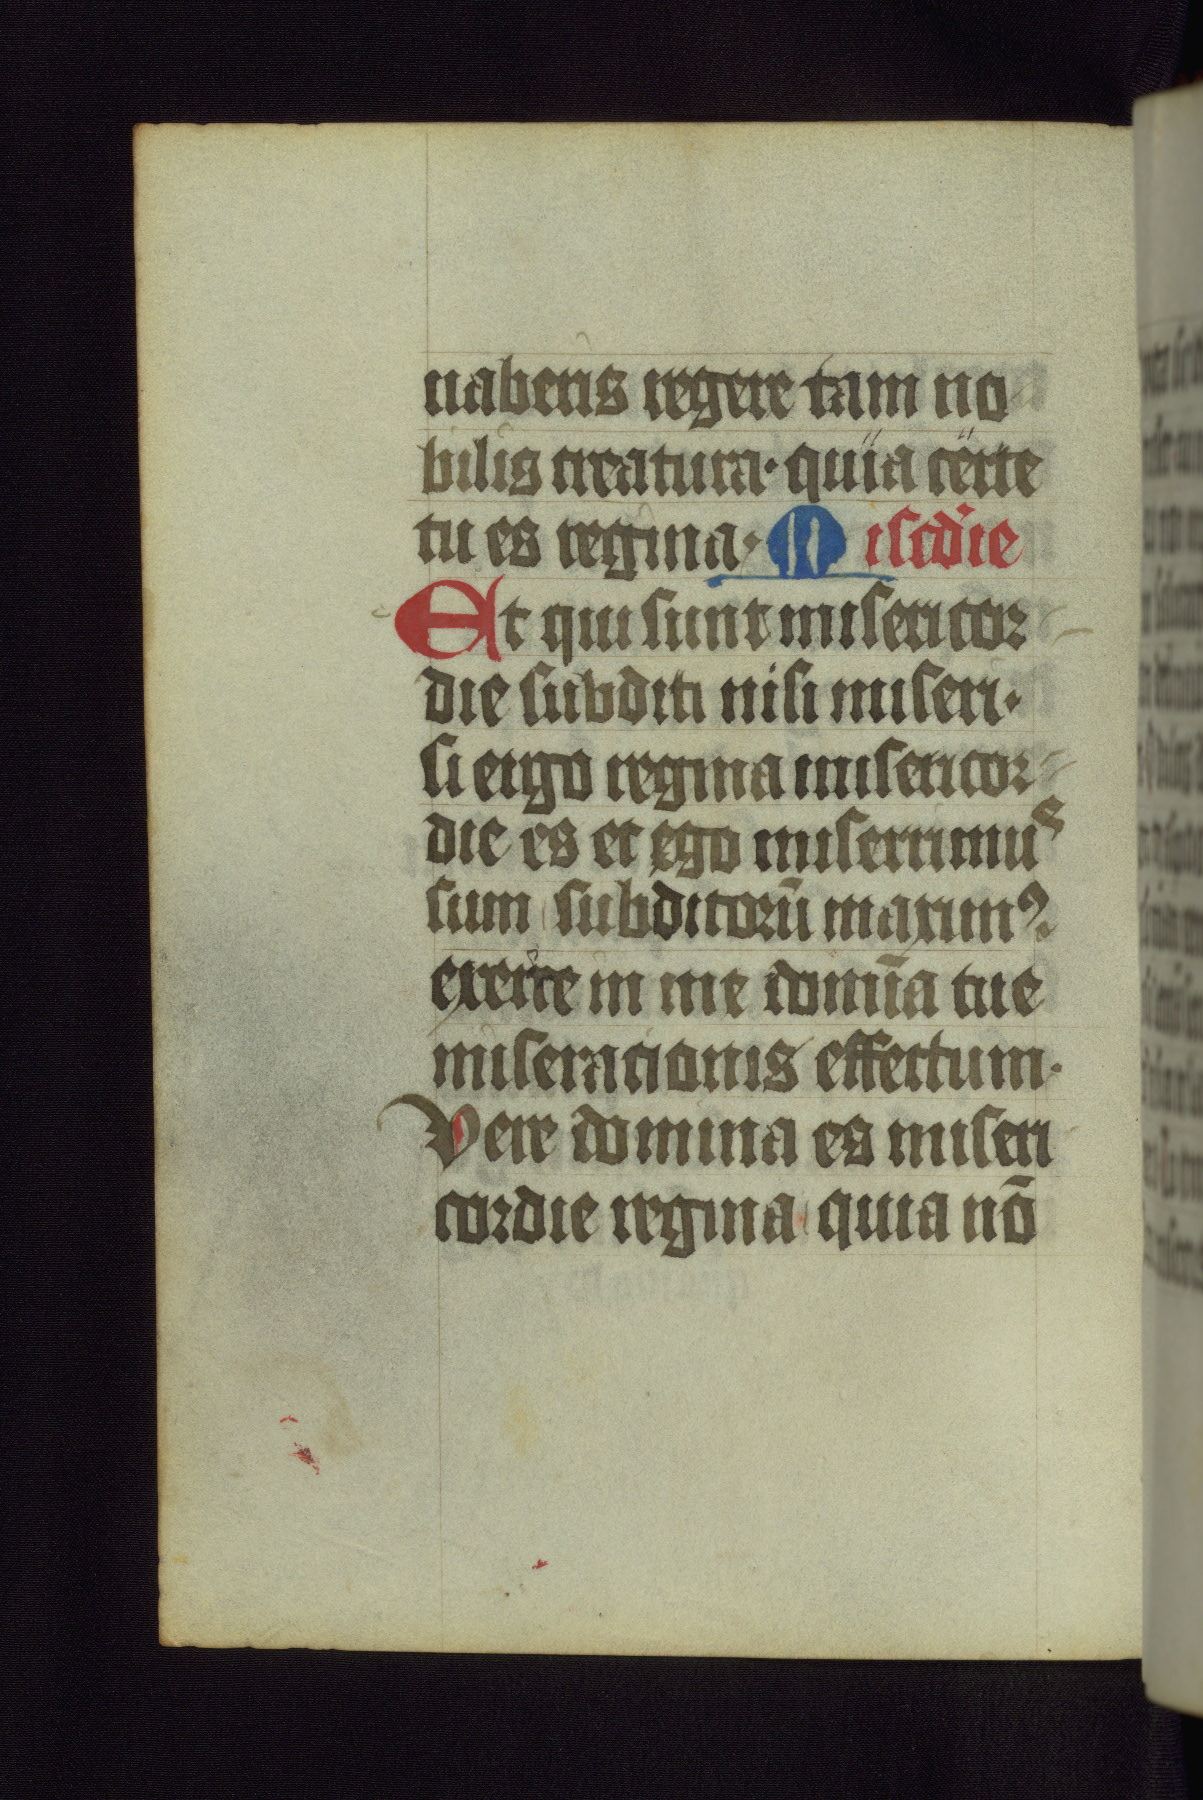 naberis regere tam no
bilis creatura· quia certe
tu es regina· Miscd'ie
Et qui sunt misericor
die subditi nisi miseri·
si ergo regina misericor
die es et ego miserrimus
sum subditorū maximꝰ·
exerce in me domīa tue
miserationis effectum·
Vere domina es miseri
cordie regina quia nō